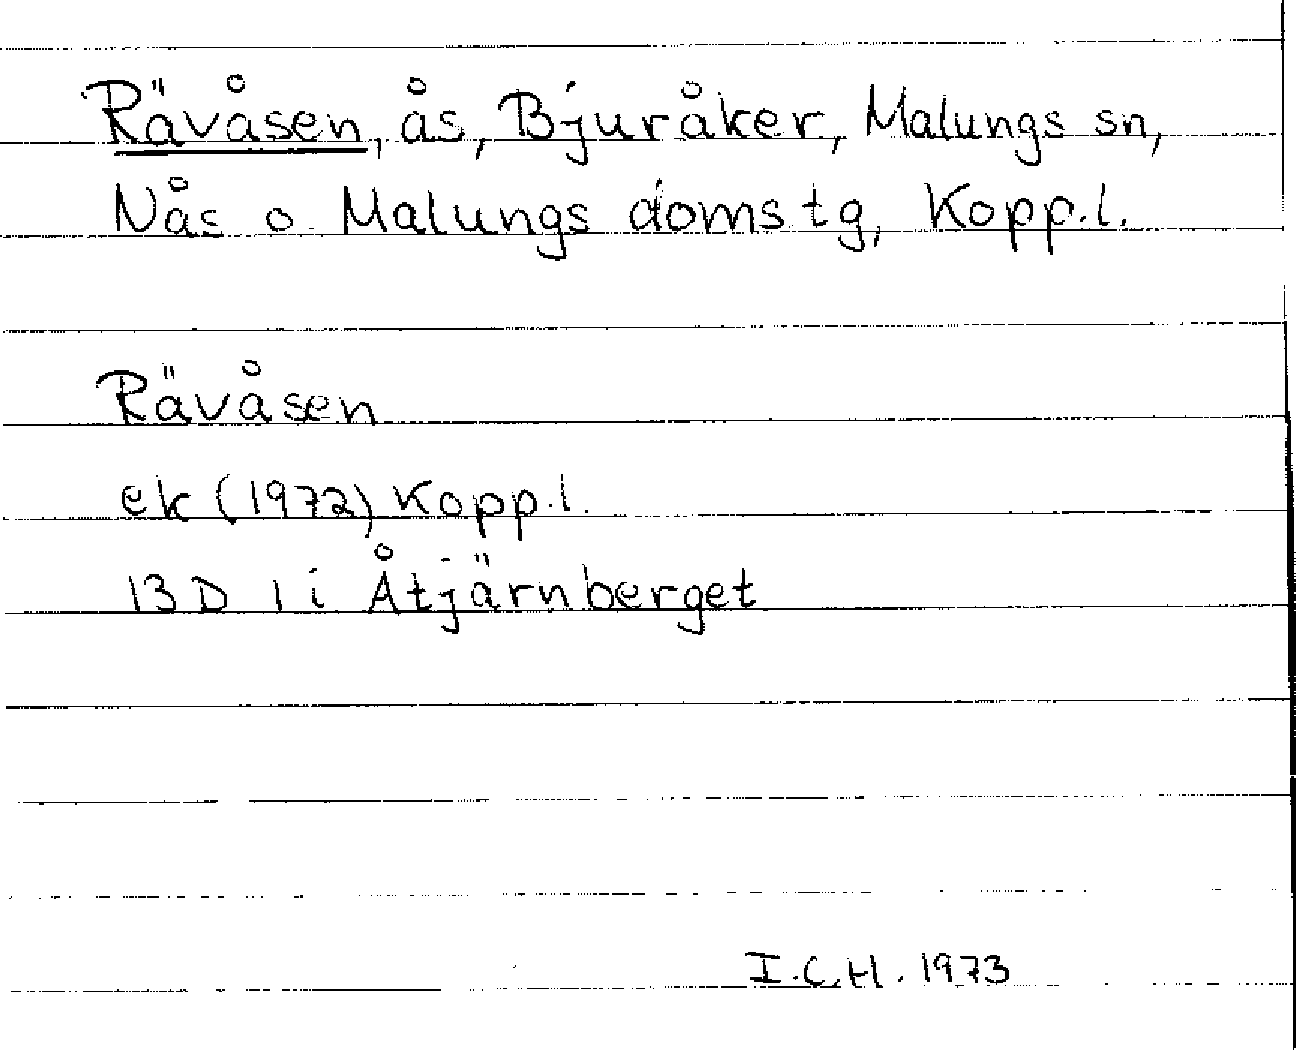 Rävåsen, ås, Bjuråker, Malungs sn,
Nås o. Malungs domstg, Kopp.l.
Rävåsen
ek (1972) Kopp.l.
13 D 1 i Åtjärnberget
I.C.H. 1973